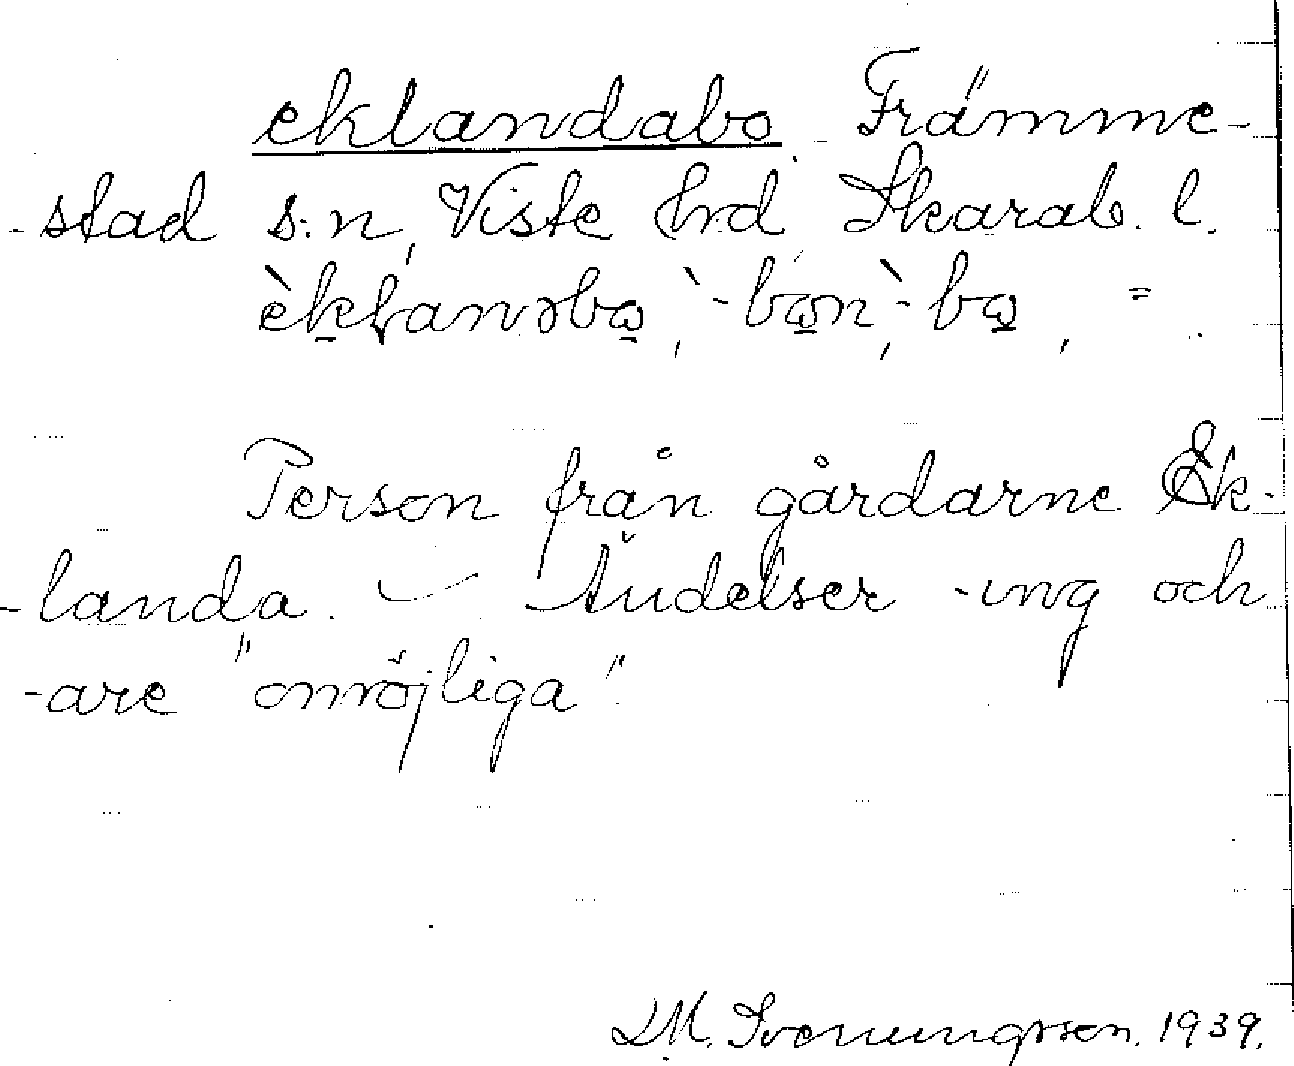 eklandabo Främme-
stad s:n, Viste hrd Skarab. l.
èklanəbo, `-bon, `-bo, =.
Person från gårdarne Ek-
landa. — Ändelser -ing och
-are "omöjliga".
D.M. Svenungsson. 1939.